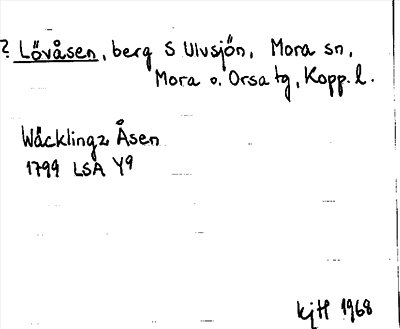 ? Lövåsen, berg S Ulvsjön, Mora sn,
Mora o. Orsa tg, Kopp. l.
Wåcklingz Åsen
1799 LSA Y9
kjH 1968